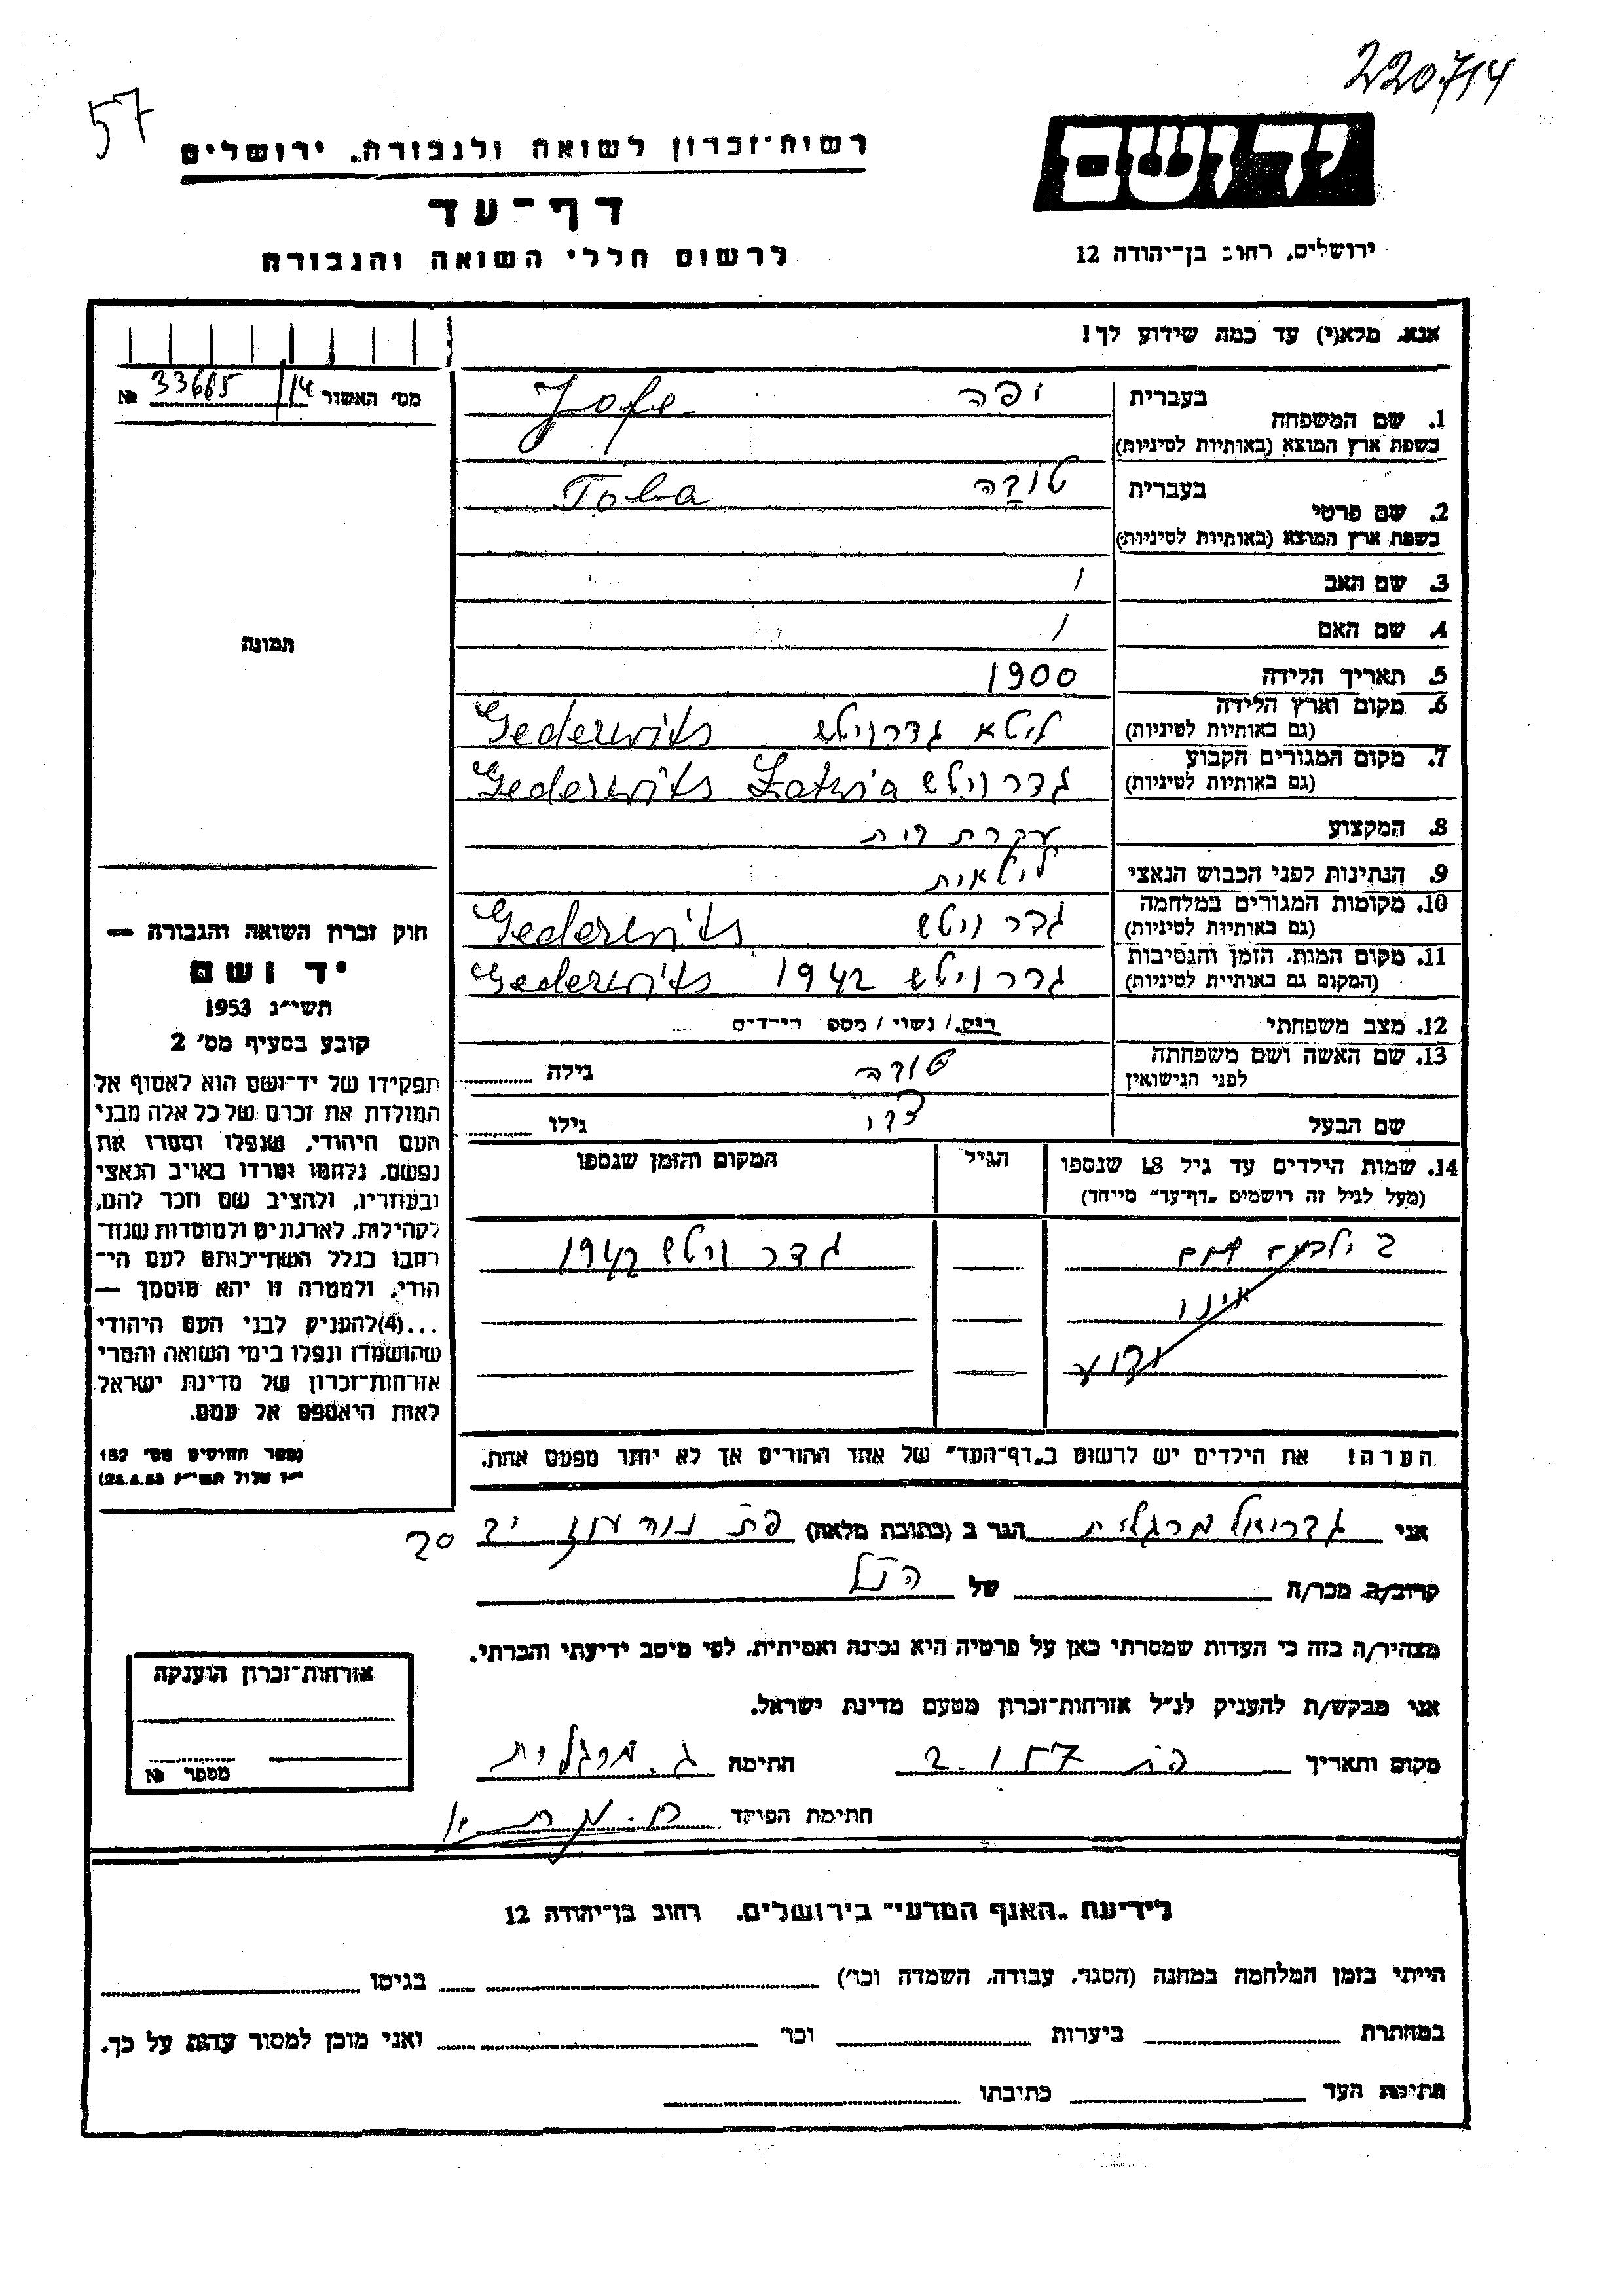 220714
57
יד ושם
רשות-זכרון לשואה ולגבורה, ירושלים
דף-עד
לרשום חללי השואה והגבורה
ירושלים, רחוב בן-יהודה 12
אנא, מלא(י) עד כמה שידוע לך!
מס' האשור 33665/14 №
1. שם המשפחה
בעברית יפה
בשפת ארץ המוצא (באותיות לטיניות) Jofe
2. שם פרטי
בעברית טובה
בשפת ארץ המוצא (באותיות לטיניות) Toba
3. שם האב /
4. שם האם /
5. תאריך הלידה 1900
6. מקום וארץ הלידה ליטא גדרויטש Gederwits
(גם באותיות לטיניות)
7. מקום המגורים הקבוע גדרויטש Latvia Gederwits
(גם באותיות לטיניות)
8. המקצוע עקרת בית
9. הנתינות לפני הכבוש הנאצי ליטאית
10. מקומות המגורים במלחמה גדרויטש Gederwits
(גם באותיות לטיניות)
11. מקום המות, הזמן והנסיבות גדרויטש 1942 Gederwits
(המקום גם באותיות לטיניות)
12. מצב משפחתי רוק/נשוי/מספר הילדים
13. שם האשה ושם משפחתה טובה גילה
לפני הנישואין
שם הבעל גילו
14. שמות הילדים עד גיל 18 שנספו הגיל המקום והזמן שנספו
(מעל לגיל זה רושמים "דף-עד" מיוחד)
2 ילדים שמם גדרויטש 1942
אינו
ידוע
הערה! את הילדים יש לרשום ב"דף-העד" של אחד ההורים אך לא יותר מפעם אחת.
תמונה
חוק זכרון השואה והגבורה —
יד ושם
תשי"ג 1953
קובע בסעיף מס' 2
תפקידו של יד-ושם הוא לאסוף אל
המולדת את זכרם של כל אלה מבני
העם היהודי, שנפלו ומסרו את
נפשם, נלחמו ומרדו באויב הנאצי
ובעוזריו, ולהציב שם וזכר להם,
לקהילות, לארגונים ולמוסדות שנח-
רבו בגלל השתייכותם לעם הי-
הודי, ולמטרה זו יהא מוסמך —
...(4)להעניק לבני העם היהודי
שהושמדו ונפלו בימי השואה והמרי
אזרחות-זכרון של מדינת ישראל
לאות היאספם אל עמם.
(ספר החוקים מס' 132
י"ז אלול תשי"ג 28.8.53)
אני גבריאל מרגלית הגר ב (כתובת מלאה) פת
קרוב/ה מכר/ה של הנ"ל
מצהיר/ה בזה כי העדות שמסרתי כאן על פרטיה היא נכונה ואמיתית, לפי מיטב ידיעתי והכרתי.
אני מבקש/ת להעניק לנ"ל אזרחות-זכרון מטעם מדינת ישראל.
מקום ותאריך פת 2.1.57 חתימה ג. מרגלית
חתימת הפוקד
אזרחות-זכרון הוענקה
מספר №
לידיעת "האגף המדעי" בירושלים, רחוב בן-יהודה 12
הייתי בזמן המלחמה במחנה (הסגר, עבודה, השמדה וכו') בגיטו
במחתרת ביערות וכו' ואני מוכן למסור עדות על כך.
חתימת העד כתיבתו